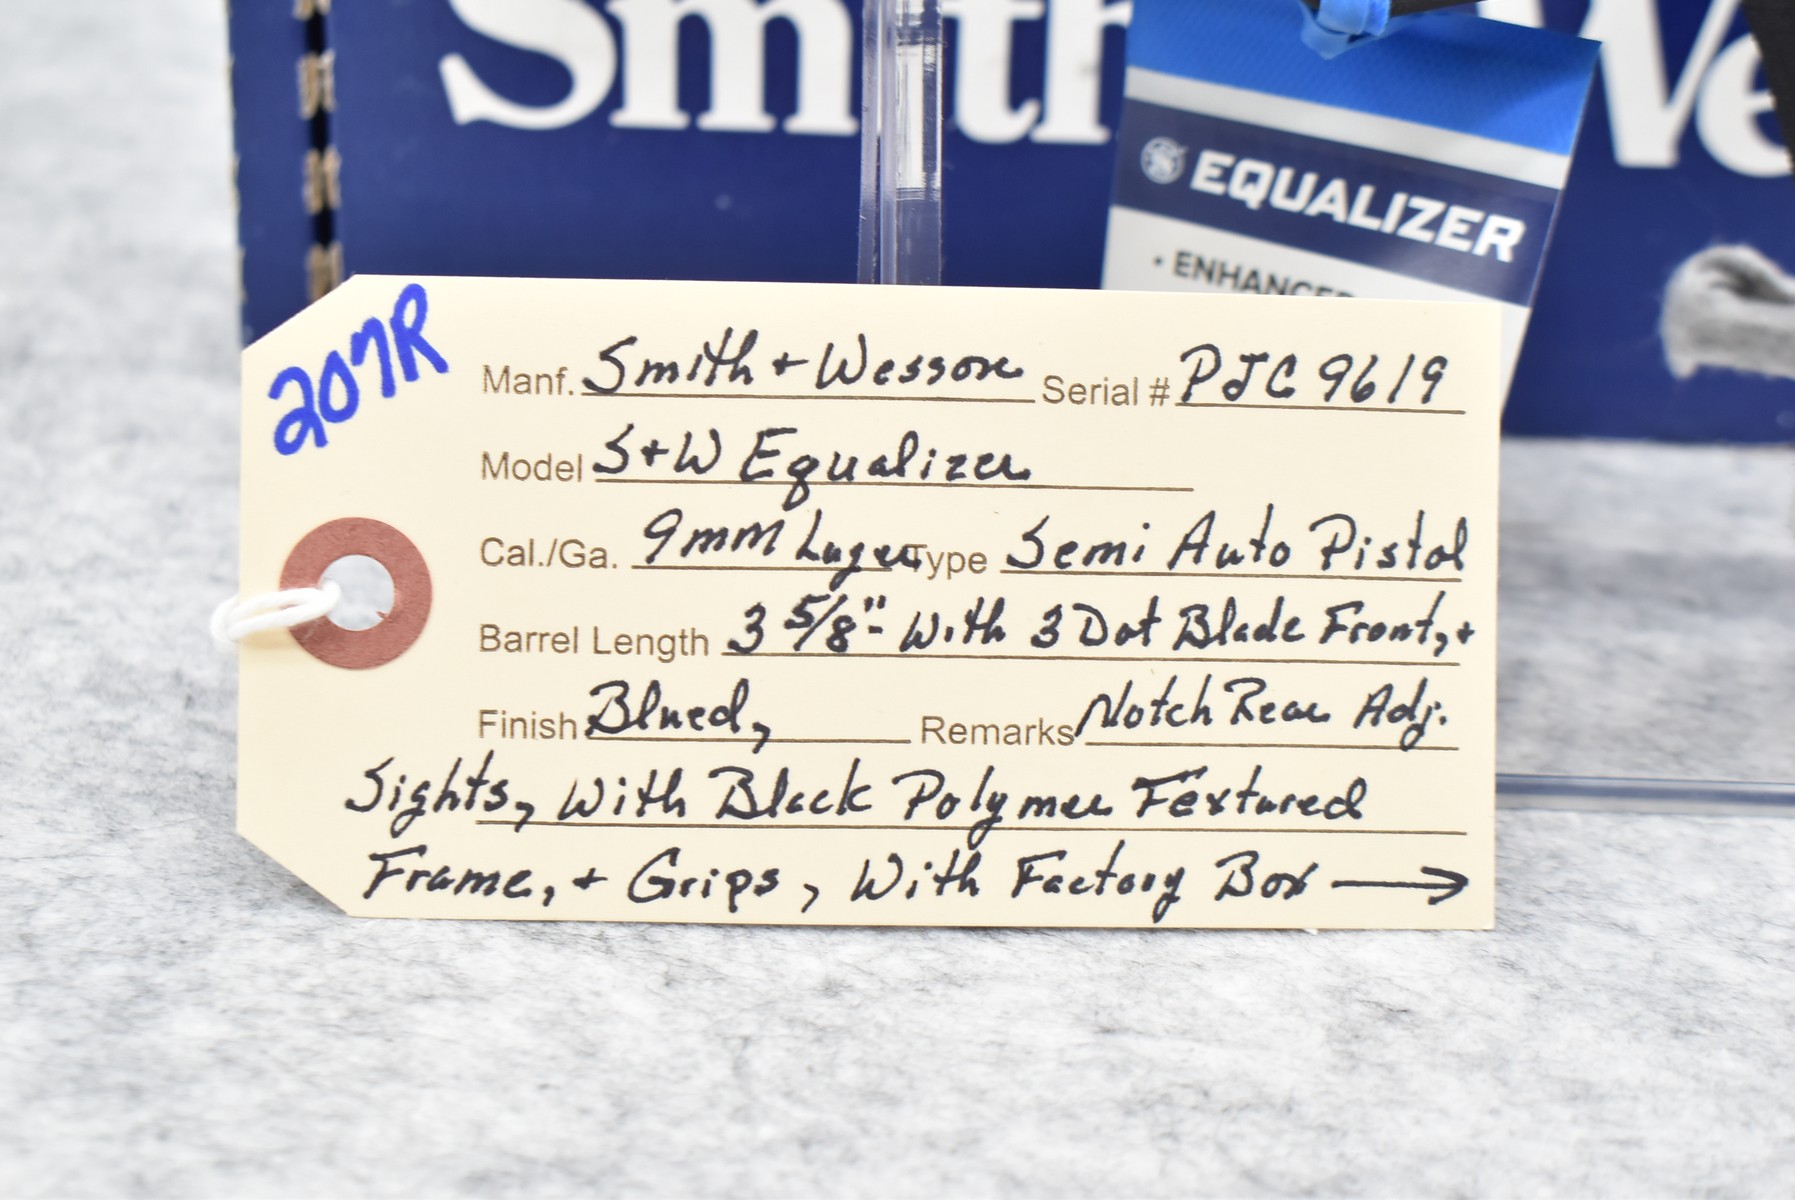 Smith We
EQUALIZER
• ENHANCED
207R
Manf. Smith + Wesson Serial # PJC 9619
Model S+W Equalizer
Cal./Ga. 9mm Luger Type Semi Auto Pistol
Barrel Length 3 5/8"- With 3 Dot Blade Front, +
Finish Blued, Remarks Notch Rear Adj.
Sights, With Black Polymer Textured
Frame, + Grips, With Factory Box →